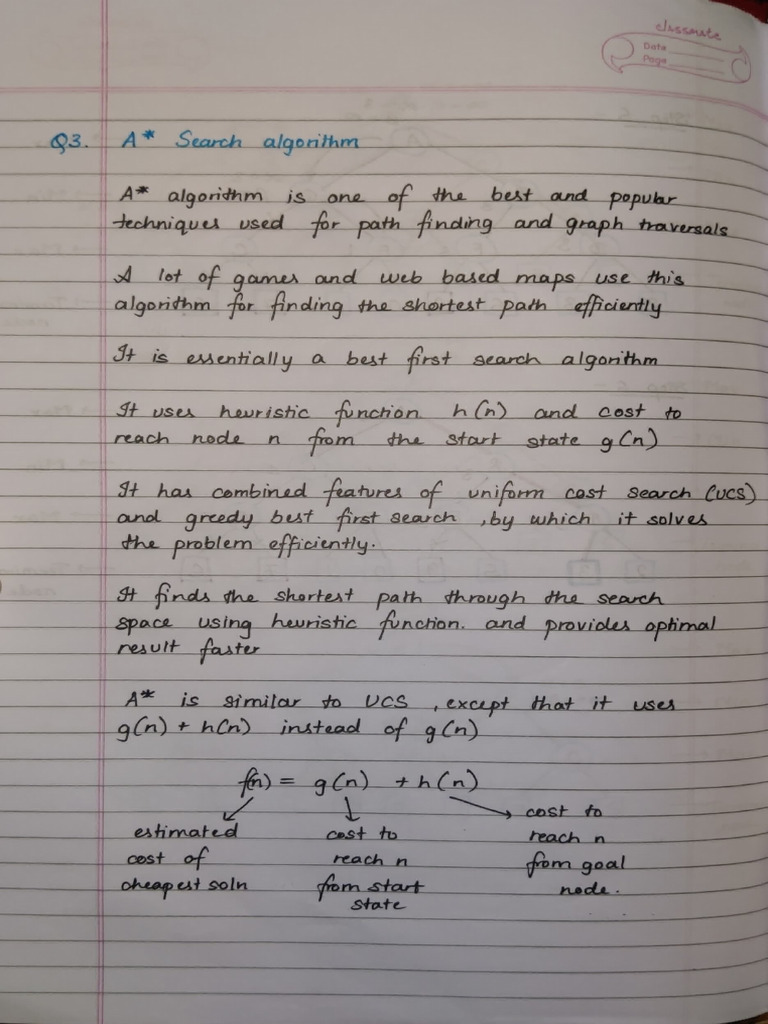 classmate
Date
Page
Q3. A* Search algorithm
A* algorithm is one of the best and popular
techniques used for path finding and graph traversals
A lot of games and web based maps use this
algorithm for finding the shortest path efficiently
It is essentially a best first search algorithm
It uses heuristic function h(n) and cost to
reach node n from the start state g(n)
It has combined features of uniform cost search (UCS)
and greedy best first search , by which it solves
the problem efficiently.
It finds the shortest path through the search
space using heuristic function. and provides optimal
result faster
A* is similar to UCS , except that it uses
g(n) + h(n) instead of g(n)
f(n) = g(n) + h(n)
estimated
cost of
cheapest soln
cost to
reach n
from start
state
cost to
reach n
from goal
node.